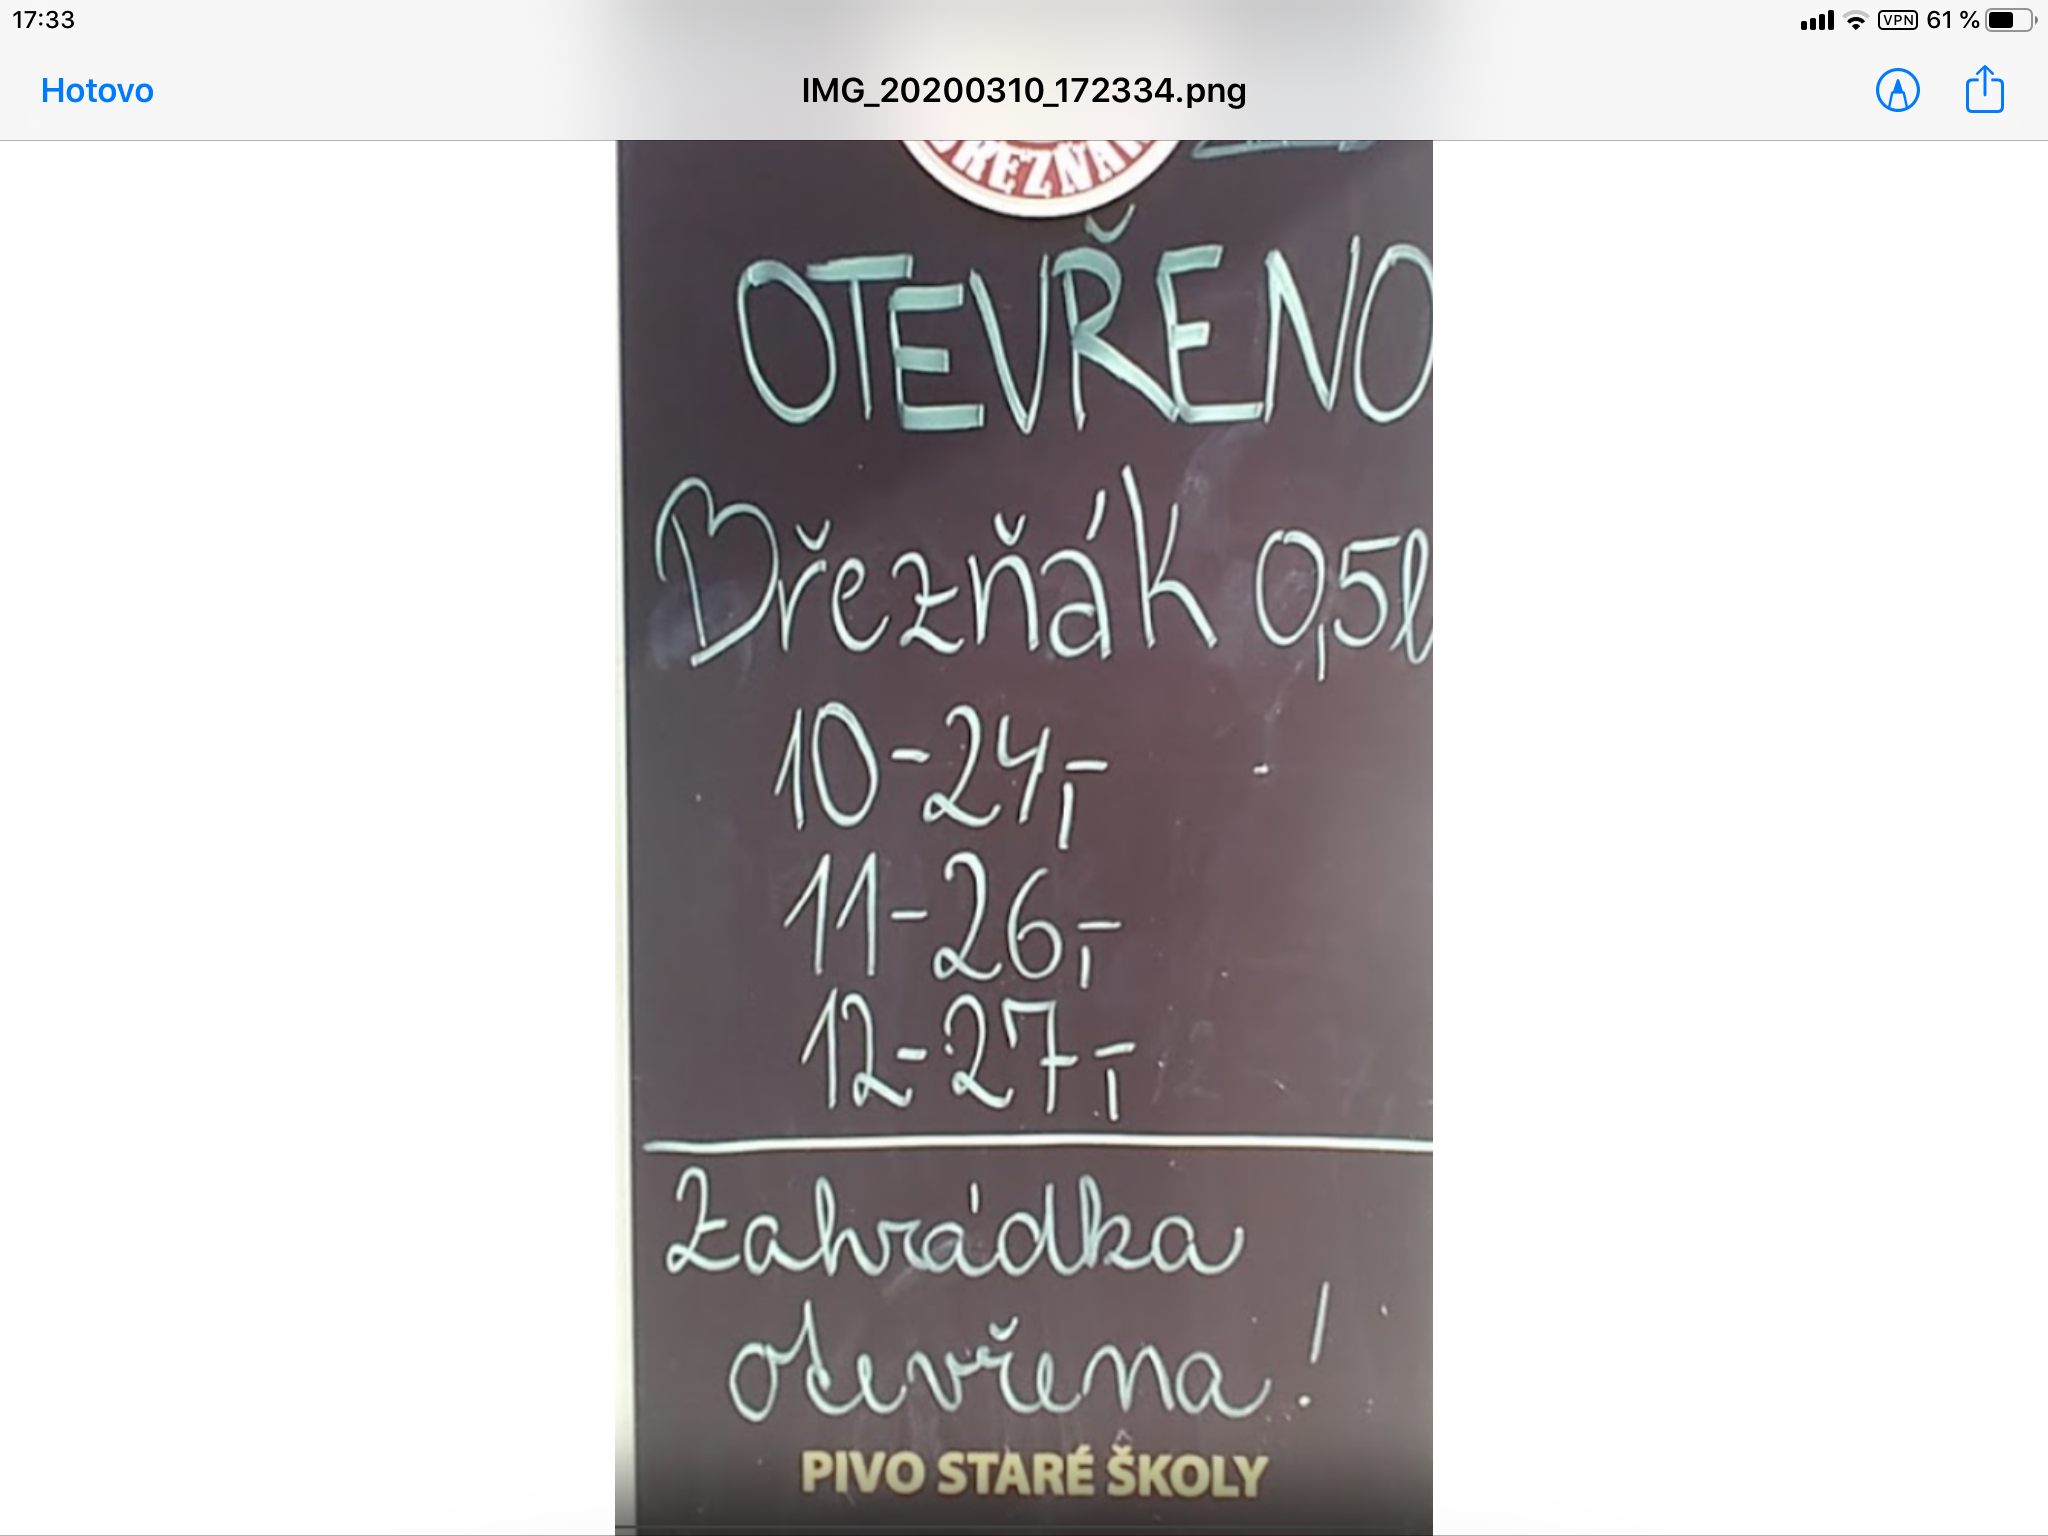 17:33
VPN 61 %
Hotovo
IMG_20200310_172334.png
BŘEZŇÁK
OTEVŘENO
Březňák 0,5l
10-24,-
11-26,-
12-27,-
Zahrádka
otevřena!
PIVO STARÉ ŠKOLY